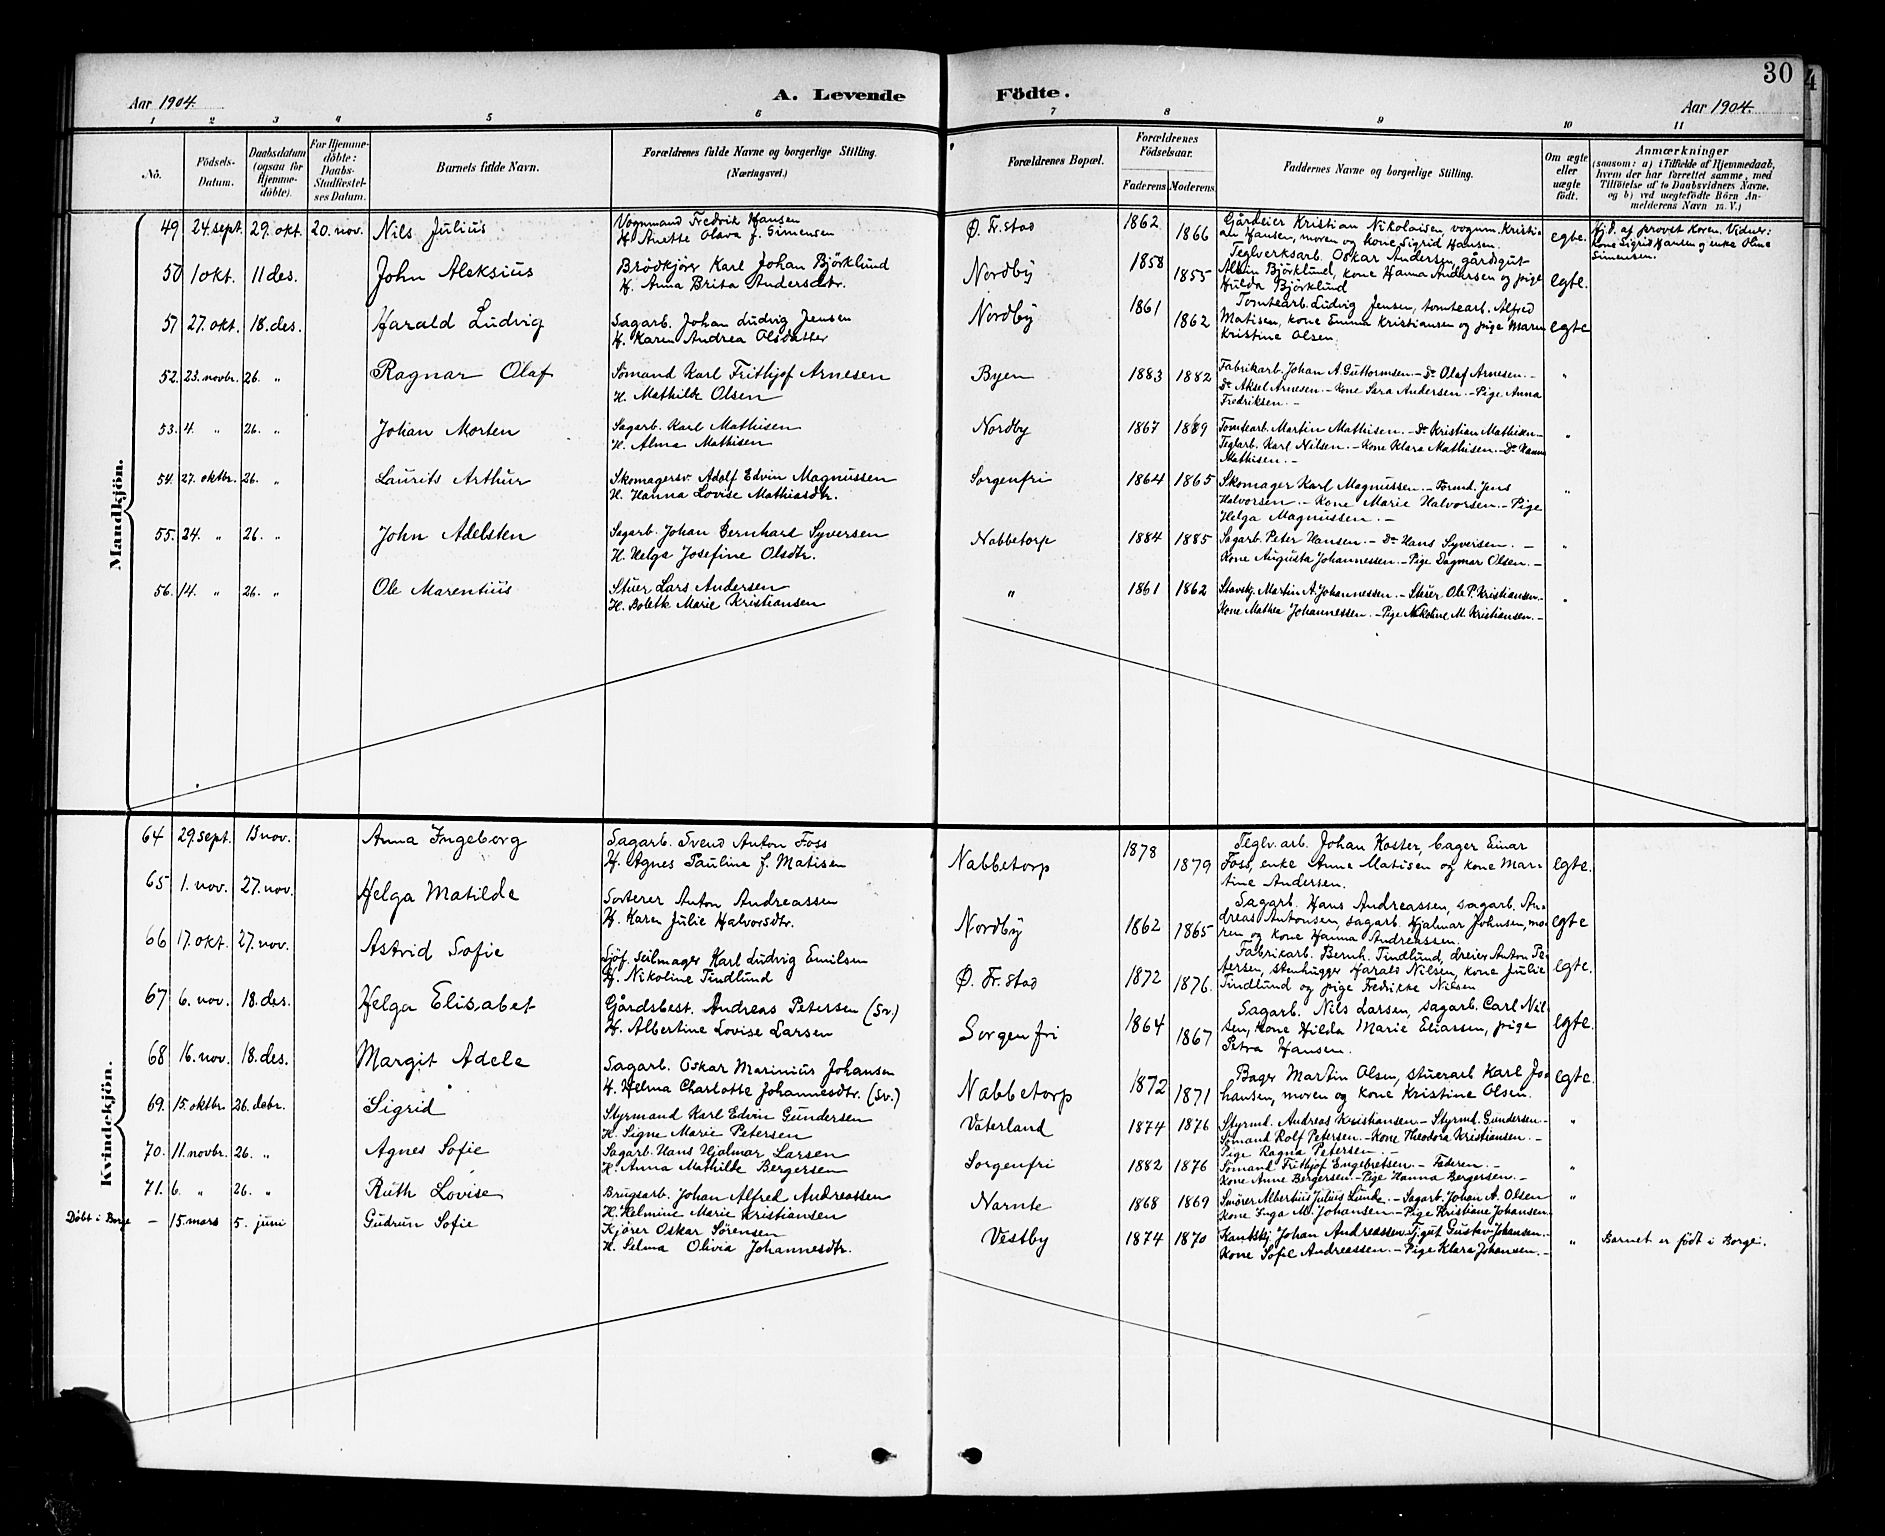 30
4
Aar 1904.
A. Levende Födte.
Aar 1904.
1 2 3 4 5 6 7 8 9 10 11
Nö.
Födsels-Datum.
Daabsdatum (ogsaa for Hjemme-döbte).
For Hjemme-döbte: Daabs-Stadfæstel-ses Datum.
Barnets fulde Navn.
Forældrenes fulde Navne og borgerlige Stilling.
(Næringsvei.)
Forældrenes Bopæl.
Forældrenes Födselsaar.
Faderens Moderens
Faddernes Navne og borgerlige Stilling.
Om ægte eller uægte födt.
Anmærkninger
(saasom: a) i Tilfælde af Hjemmedaab, hvem der har forrettet samme, med Tilföielse af to Daabsvidners Navne, og b) ved uægtefödte Börn An-melderens Navn m. V.)
Mandkjön.
49 24. sept. 29. okt. 20. nov. Nils Julius
Vognmand Fredrik Hansen
H. Anette Olava f. Simensen
Ø. Fr.stad 1862 1866
Gårdeier Kristian Nikolaisen, vognm. Kristi-
an Hansen, moren og kone Sigrid Hansen.
egte.
Hj.d. af provst Koren. Vidner:
Kone Sigrid Hansen og enke Oline
Simensen.
50 1 okt. 11 des. John Aleksius
Brödkjörer Karl Johan Björklund
H. Anna Brita Andersdtr.
Nordby 1858 1855
Teglverksarb. Oskar Andersen, gårdsgut
Alvin Björklund, kone Hanna Andersen og pige
Hulda Björklund
egte.
51 27. okt. 18. des. Harald Ludvig
Sagarb. Johan Ludvig Jensen
H. Karen Andrea Olsdatter
Nordby 1861 1862
Tomtearb. Ludvig Jensen, tomtearb. Alfred
Matisen, kone Emma Kristiansen og pige Maren
Kristine Olsen.
egte
52. 23. novbr. 26. " Ragnar Olaf
Sömand Karl Frithjof Arnesen
H. Mathilde Olsen
Byen 1883 1882
Fabrikarb. Johan A. Guttormsen – Do Olaf Arnesen. –
Do Aksel Arnesen – Kone Sara Andersen. – Pige Anna
Fredriksen. –
"
53. 4. " 26. " Johan Morten
Sagarb. Karl Mathisen
H. Alma Mathisen
Nordby 1867 1869
Tomtearb. Martin Mathisen. – Do Kristian Mathisen –
Teglarb. Karl Nilsen. – Kone Klara Mathisen. – Do Hanna
Mathisen. –
"
54. 27. oktbr. 26. " Laurits Arthur
Skomagersv. Adolf Edvin Magnussen
H. Hanna Lovise Mathiasdtr.
Sorgenfri 1864 1865
Skomager Karl Magnussen. – Formd. Jens
Halvorsen. – Kone Marie Halvorsen. – Pige
Helga Magnussen. –
"
55. 24. " 26. " John Adelsten
Sagarb. Johan Bernhard Syversen
H. Helga Josefine Olsdtr.
Nabbetorp 1884 1885
Sagarb. Peter Hansen. – Do Hans Syversen. –
Kone Augusta Johannessen. – Pige Dagmar Olsen. –
"
56. 14. " 26. " Ole Marentius
Stuer Lars Andersen
H. Bolette Marie Kristiansen
" 1861 1862
Stavskj. Martin A. Johannessen. – Stuer Ole P. Kristiansen. –
Kone Mathea Johannessen. – Pige Nikoline M. Kristiansen. –
"
Kvindekjön.
64 29. sept. 13 nov. Anna Ingeborg
Sagarb. Svend Anton Foss
H. Agnes Pauline f. Matisen
Nabbetorp 1878 1879
Teglv.arb. Johan Koster, bager Einar
Foss, enke Anne Matisen og kone Mar-
tine Andersen.
egte.
65 1. nov. 27. nov. Helga Matilde
Sorterer Anton Andreassen
H. Karen Julie Halvorsdtr.
Nordby 1862 1865
Sagarb. Hans Andreassen, sagarb. An-
dreas Antonsen, sagarb. Hjalmar Johnsen, mo-
ren og kone Hanna Andreassen.
egte
66 17. okt. 27. nov. Astrid Sofie
Sjöf. Seilmager Karl Ludvig Emilsen
H. Nikoline Tindlund
Ø. Fr.stad 1872 1876.
Fabrikarb. Bernh. Tindlund, dreier Anton Pe-
tersen, stenhugger Harals Nilsen, kone Julie
Tindlund og pige Fredrikke Nilsen
egte.
67 6. nov. 18. des. Helga Elisabet
Gårdsbest. Andreas Petersen (Sv.)
H. Albertine Lovise Larsen
Sorgenfri 1864 1867
Sagarb. Nils Larsen, sagarb. Carl Nil-
sen, kone Hilda Marie Eliassen, pige
Petra Hansen.
egte.
68 16. nov. 18. des. Margit Adele
Sagarb. Oskar Marinius Johansen
H. Helma Charlotte Johannesdtr. (Sv.)
Nabbetorp 1872 1871
Bager Martin Olsen, stuerarb Karl Jo-
hansen, moren og kone Kristine Olsen.
egte.
69. 15. oktbr. 26. debr. Sigrid
Styrmand Karl Edvin Gundersen
H. Signe Marie Petersen
Vaterland 1874 1876
Styrmd. Andreas Kristiansen – Styrmd. Gundersen –
Sömand Rolf Petersen. – Kone Theodora Kristiansen. –
Pige Ragna Petersen. –
"
70. 11. novbr. 26. " Agnes Sofie
Sagarb. Hans Hjalmar Larsen
H. Anna Mathilde Bergersen
Sorgenfri 1882 1876
Sömand Frithjof Engebretsen. – Faderen. –
Kone Anne Bergersen. – Pige Hanna Bergersen. –
"
71. 6. " 26. " Ruth Lovise
Brugsarb. Johan Alfred Andreassen
H. Helmine Marie Kristiansen
Narnte 1868 1869
Smörer Albertius Julius Lunde. – Sagarb. Johan A. Olsen
Kone Inga M. Johansen – Pige Kristiane Johansen
"
Döbt i Borge – 15. mars 5. juni Gudrun Sofie
Kjörer Oskar Sörensen
H. Selma Olivia Johannesdtr.
Vestby 1874 1870
Kantskj. Johan Andreassen Tj.gut Gustav Johansen. –
Kone Sofie Andreassen. – Pige Klara Johansen. –
"
Barnet er födt i Borge.